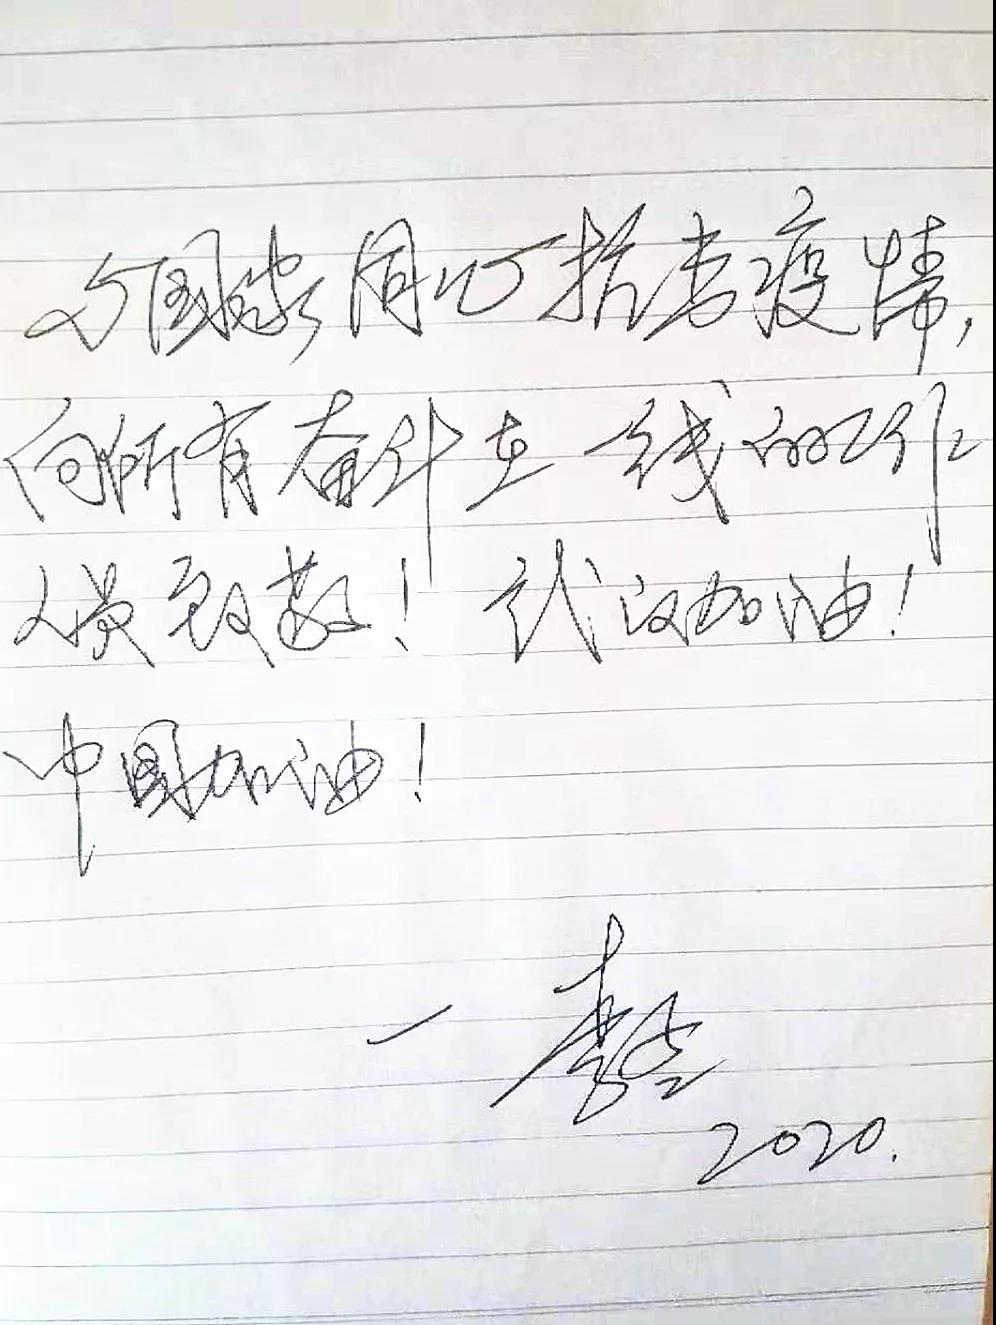 与国家同心抗击疫情,
向所有奋斗在一线的工作
人员致敬! 武汉加油!
中国加油!
一 李
2020.